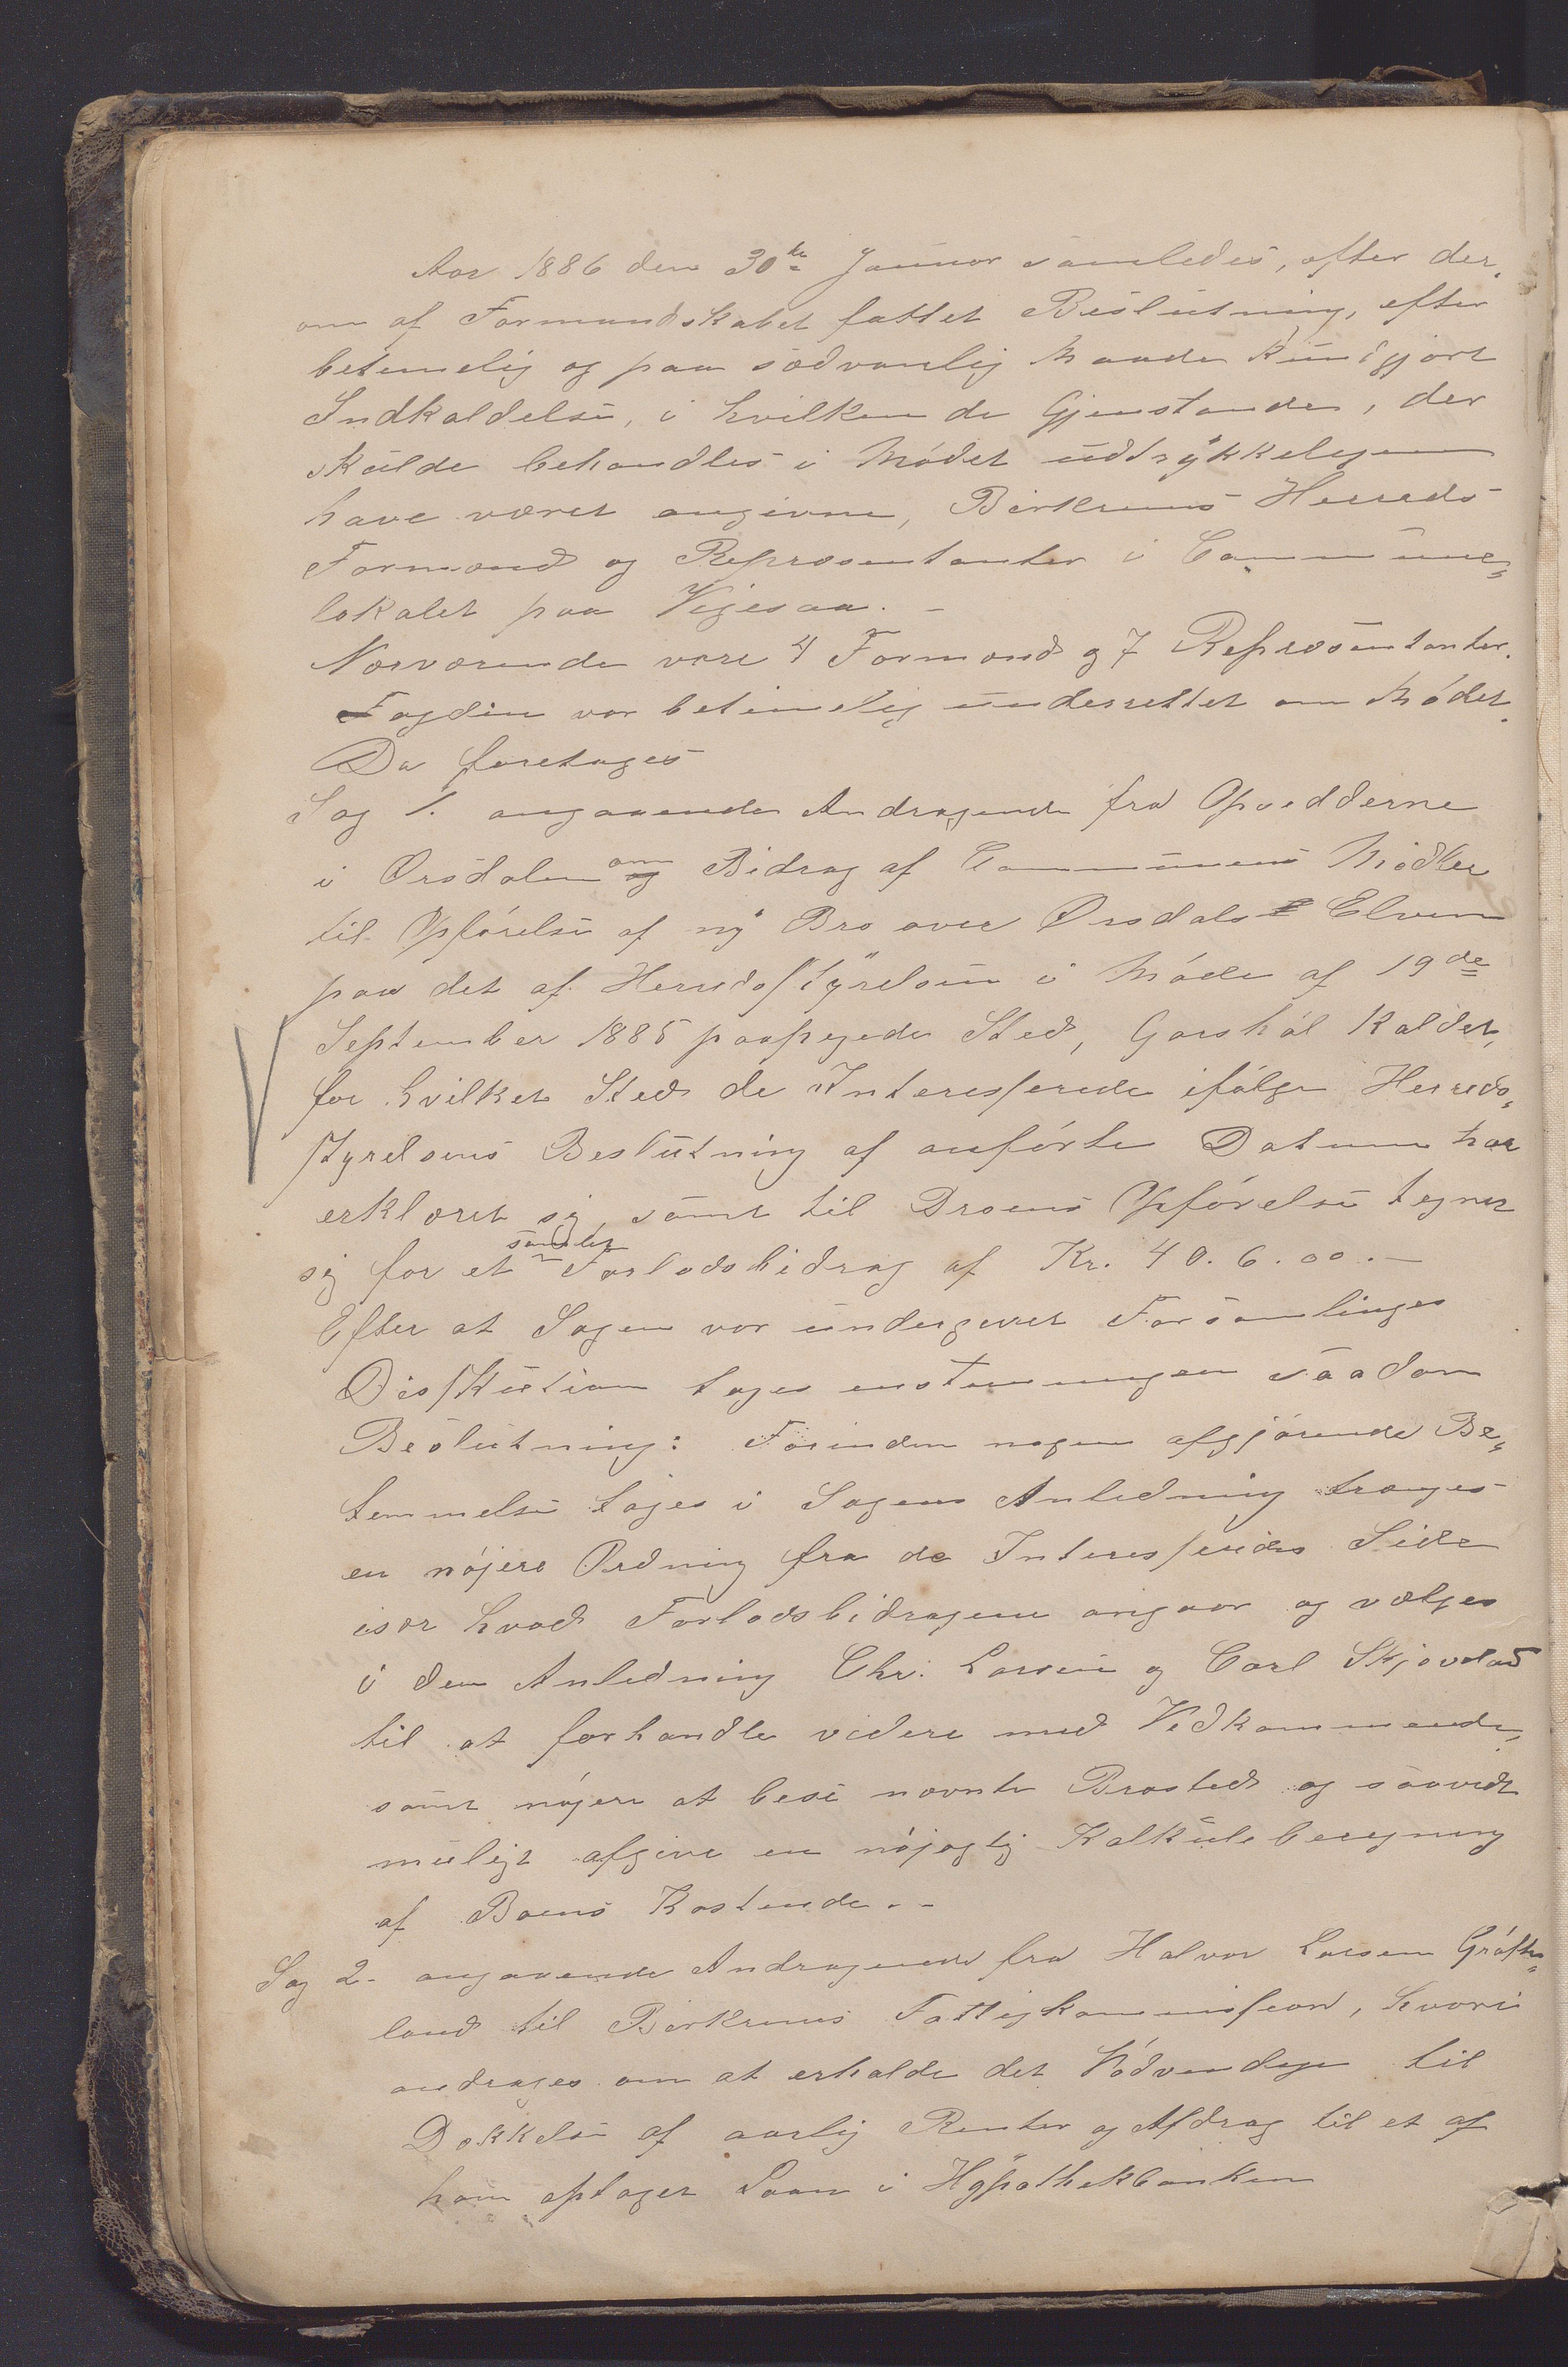 Aar 1886 den 30te Januar samledes, efter der,
om af Formandskabet fattet Beslutning, efter
betimelig og paa sædvanlig Maade kundgjort
Indkaldelse, i hvilken de Gjenstande, der
skulde behandles i Mødet udtrykkeligen
have været angivne, Birkrems Herreds
Formænd og Repræsentanter i Commune-
lokalet paa Vigesaa. -
Nærværende vare 4 Formænd og 7 Repræsentanter.
Fogden var betimelig underrettet om Mødet.
Da foretages
Sag 1. angaaende Andragende fra Opsidderne
i Ørsdalen om Bidrag af Communens Midler
til Opførelse af ny Bro over Ørsdals Elven
paa det af Herredsstyrelsen i Møde af 19de
September 1885 paapegede Sted, Garshøl kaldet,
for hvilket Sted de Interesserede ifølge Herreds-
styrelsens Beslutning af anførte Datum har
erklæret sig, samt til Broens Opførelse tegnet
sig for et samlet Forlodsbidrag af Kr. 40.6.00. -
Efter at Sagen var undergivet Forsamlinges
Diskution toges enstemmigen saadan
Beslutning: Forinden nogen afgjørende Be-
temmelse tages i Sagens Anledning trænges
en nøjere Ordning fra de Interesseredes Side
især hvad Forlodsbidragene angaar og vælges
i den Anledning Chr. Larsen og Carl Skjævelad
til at forhandle videre med Vedkommende,
samt nøjere at bese nævnte Brosted og saavidt
muligt afgive en nøjagtig Kalkuleberegning
af Boens Kostende. -
Sag 2. angaaende Andragende fra Halvor Larsen Grøfte-
land til Birkrems Fattigkommission, hvori
andrages om at erholde det Nødvendige til
Dækkelse af aarlig Renter og Afdrag til et af
ham optaget Laan i Hypothekbanken